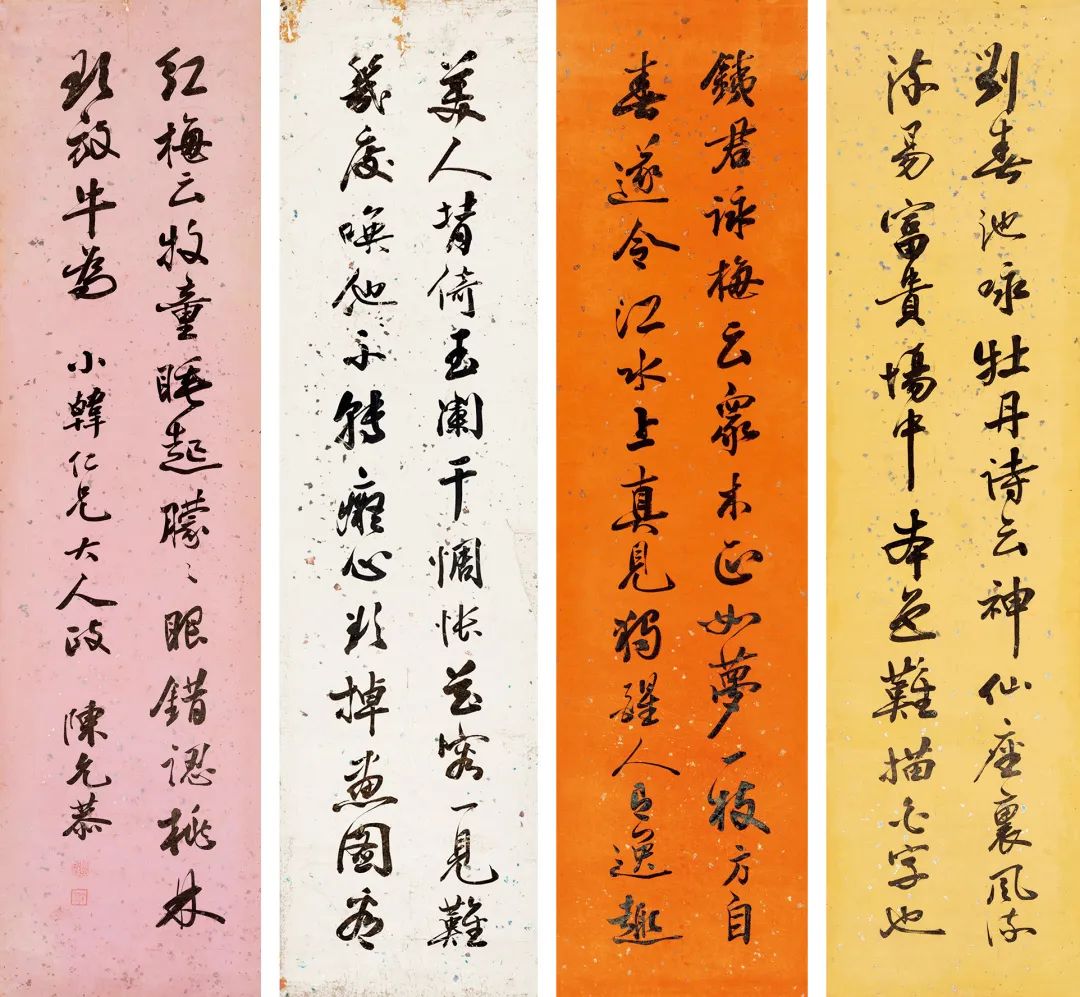 劉春池咏牡丹诗云神仙座裏風流
流易富貴場中本色難描字也
銕君詠梅云眾木正如夢一枝方自
春遂令江水上真見獨醒人有逸趣
美人背倚玉闌干惆悵花容一見難
幾度喚他不轉癡心欲掉畫圖看
紅梅云牧童睡起朦々眼錯認桃林
欲放牛為 小韓仁兄大人政 陳允恭